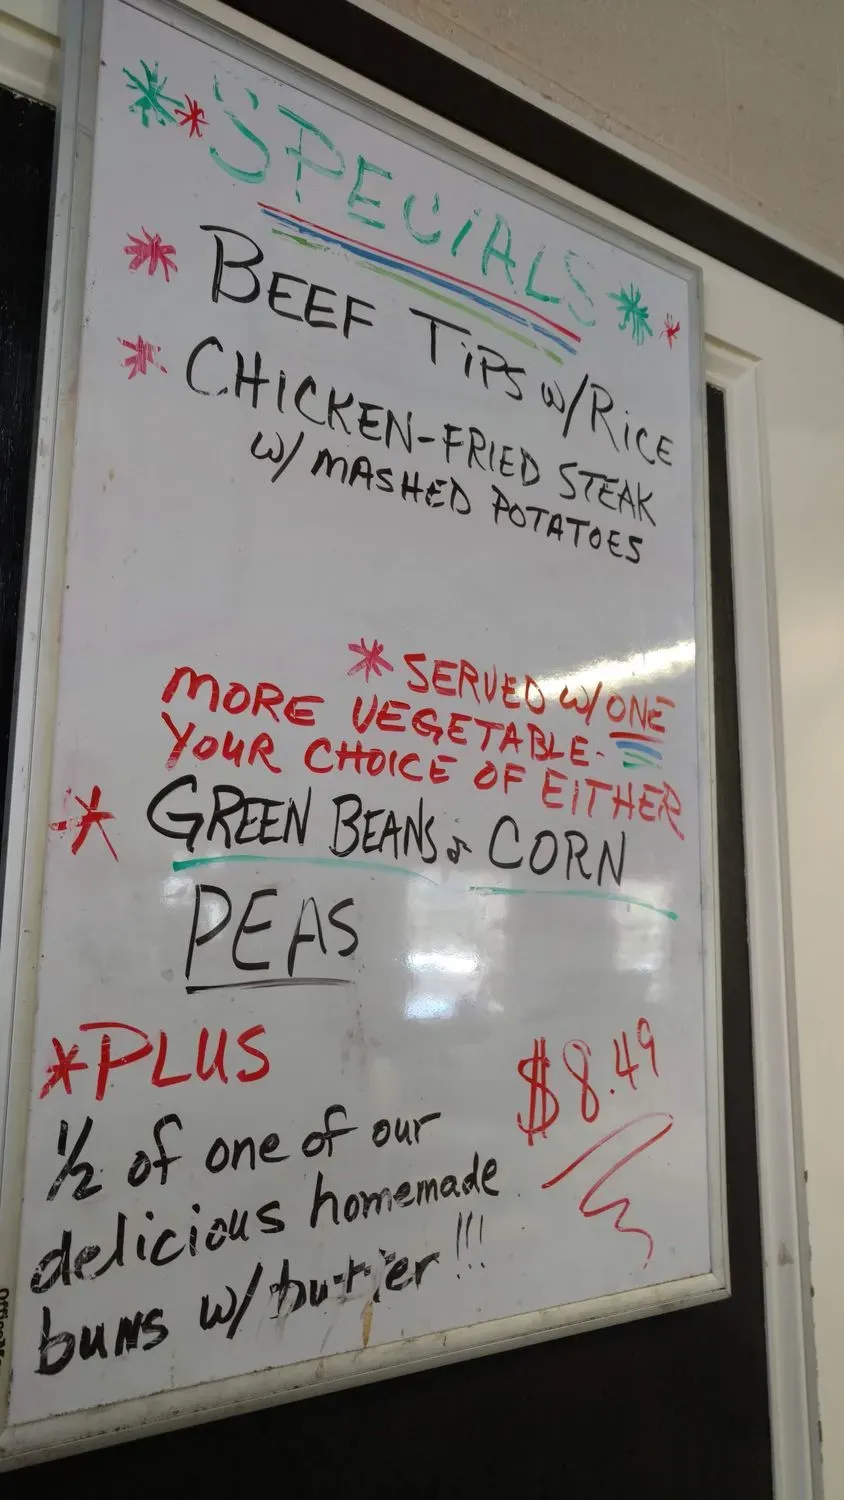 **SPECIALS**
* BEEF TiPS w/RiCE
* CHICKEN-FRIED STEAK
w/ MASHED POTATOES
* SERVED w/ ONE
MORE VEGETABLE-
YOUR CHOICE OF EITHER
* GREEN BEANS, CORN
PEAS
*PLUS
$8.49
1/2 of one of our
delicious homemade
buns w/ butter !!!